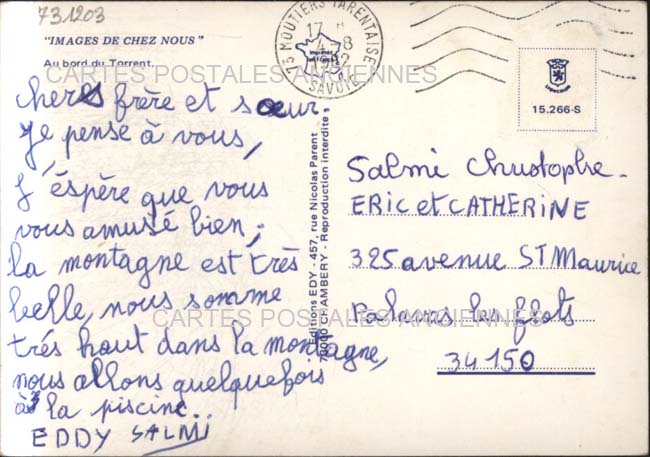 731203
"IMAGES DE CHEZ NOUS"
Au bord du Torrent.
CARTES POSTALES ANCIENNES
chers frère et sœur.
Je pense à vous,
J'éspère que vous
vous amusé bien,
la montagne est très
belle, nous somme
CARTES POSTALES ANCIENNES
très haut dans la montagne,
nous allons quelquefois
à la piscine..
EDDY SALMI
Editions EDY - 457, rue Nicolas Parent
73000 CHAMBERY - Reproduction interdite
73 MOUTIERS TARENTAISE
17 H
4-8
1982
SAVOIE
Imprimé
en France
15.266-S
Salmi Christophe
ERIC et CATHERINE
325 avenue ST Maurice
Palavas les flots
34150